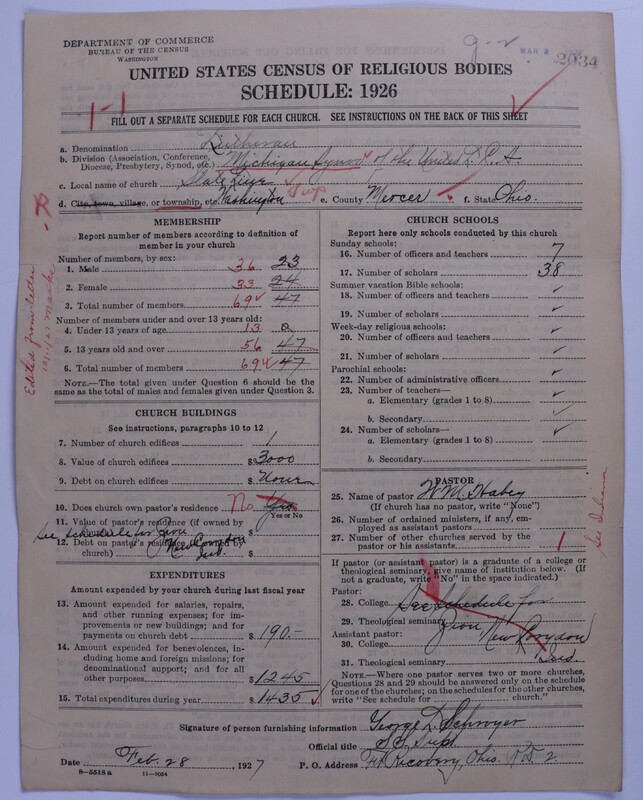 DEPARTMENT OF COMMERCE
BUREAU OF THE CENSUS
WASHINGTON
MAR 2
2034
UNITED STATES CENSUS OF RELIGIOUS BODIES
SCHEDULE: 1926
1-1
FILL OUT A SEPARATE SCHEDULE FOR EACH CHURCH. SEE INSTRUCTIONS ON THE BACK OF THIS SHEET
a. Denomination Lutheran
b. Division (Association, Conference, Diocese, Presbytery, Synod, etc.) Michigan Synod of the United L. C. A
c. Local name of church State Line
d. City, town, village, or township, etc. Washington e. County Mercer f. State Ohio.
MEMBERSHIP
Report number of members according to definition of member in your church
Number of members, by sex:
1. Male 36 23
2. Female 33 24
3. Total number of members 69 47
Number of members under and over 13 years old:
4. Under 13 years of age 13 0
5. 13 years old and over 56 47
6. Total number of members 69 47
NOTE.—The total given under Question 6 should be the same as the total of males and females given under Question 3.
Edited from letter
CHURCH BUILDINGS
See instructions, paragraphs 10 to 12
7. Number of church edifices 1
8. Value of church edifices $3000
9. Debt on church edifices $
10. Does church own pastor's residence No Yes
Yes or No
11. Value of pastor's residence (if owned by church) $
See schedule for Zion
12. Debt on pastor's residence church) $
New Corydon
Ind.
EXPENDITURES
Amount expended by your church during last fiscal year
13. Amount expended for salaries, repairs, and other running expenses; for improvements or new buildings; and for payments on church debt $190.-
14. Amount expended for benevolences, including home and foreign missions; for denominational support; and for all other purposes $1245
15. Total expenditures during year $1435
CHURCH SCHOOLS
Report here only schools conducted by this church
Sunday schools:
16. Number of officers and teachers 7
17. Number of scholars 38
Summer vacation Bible schools:
18. Number of officers and teachers ✓
19. Number of scholars ✓
Week-day religious schools:
20. Number of officers and teachers ✓
21. Number of scholars ✓
Parochial schools:
22. Number of administrative officers ✓
23. Number of teachers—
a. Elementary (grades 1 to 8) ✓
b. Secondary ✓
24. Number of scholars—
a. Elementary (grades 1 to 8) ✓
b. Secondary
PASTOR
25. Name of pastor W M Habey
(If church has no pastor, write "None")
26. Number of ordained ministers, if any, employed as assistant pastors
27. Number of other churches served by the pastor or his assistants 1
If pastor (or assistant pastor) is a graduate of a college or theological seminary, give name of institution below. (If not a graduate, write "No" in the space indicated.)
Pastor:
28. College See Schedule for
29. Theological seminary Zion New Corydon
Assistant pastor:
30. College
Ind.
31. Theological seminary
NOTE.—Where one pastor serves two or more churches, Questions 28 and 29 should be answered only on the schedule for one of the churches; on the schedules for the other churches, write "See schedule for church."
Signature of person furnishing information George D. Schroyer
Official title S.S. Supt.
Date Feb. 28, 1927 P. O. Address Ft Recovery, Ohio. R.D. 2
8-5518a 11-9054